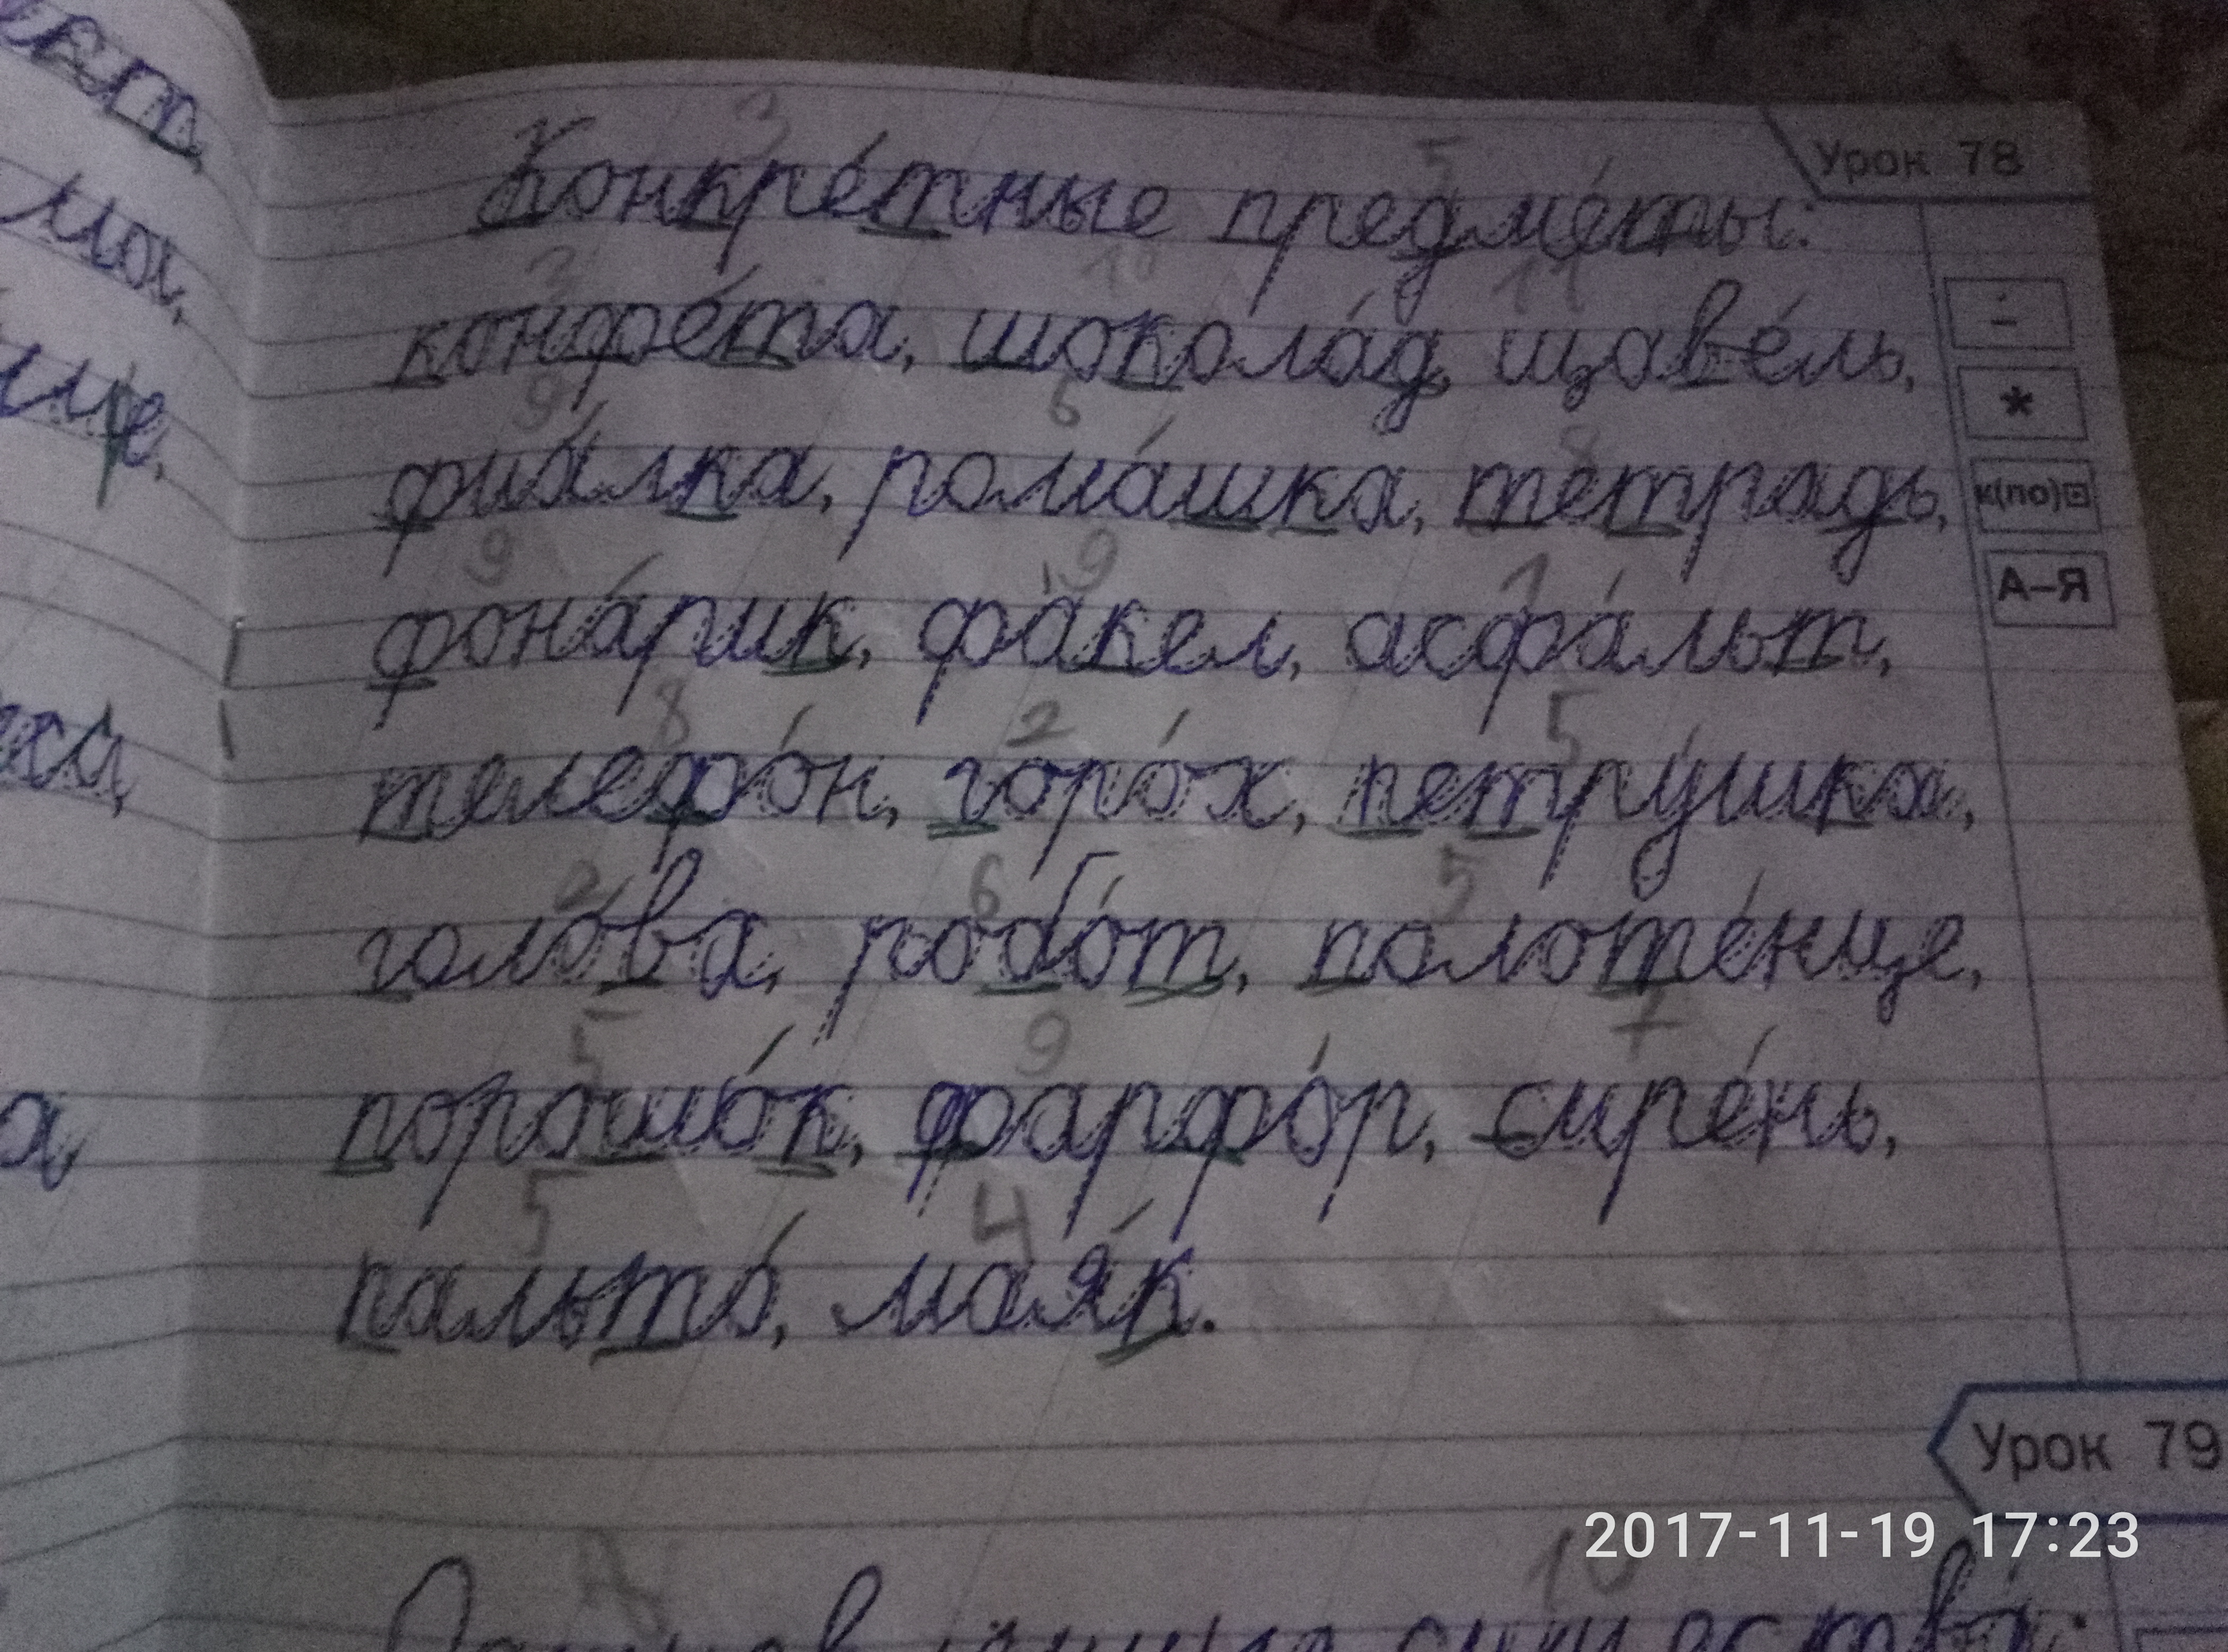 Урок 78
3 5
Конкре́тные предме́ты:
3 10 11
конфе́та, шокола́д, щаве́ль,
9 6 8
фиа́лка, рома́шка, тетрадь,
9 9 1
фона́рик, фа́кел, асфа́льт,
8 2 5
телефо́н, горо́х, петру́шка,
2 6 5
голо́ва, робо́т, полоте́нце,
5 9 7
порошо́к, фарфо́р, сире́нь,
5 4
пальто́, мая́к.
*
к(по)
А–Я
Урок 79
10
2017-11-19 17:23